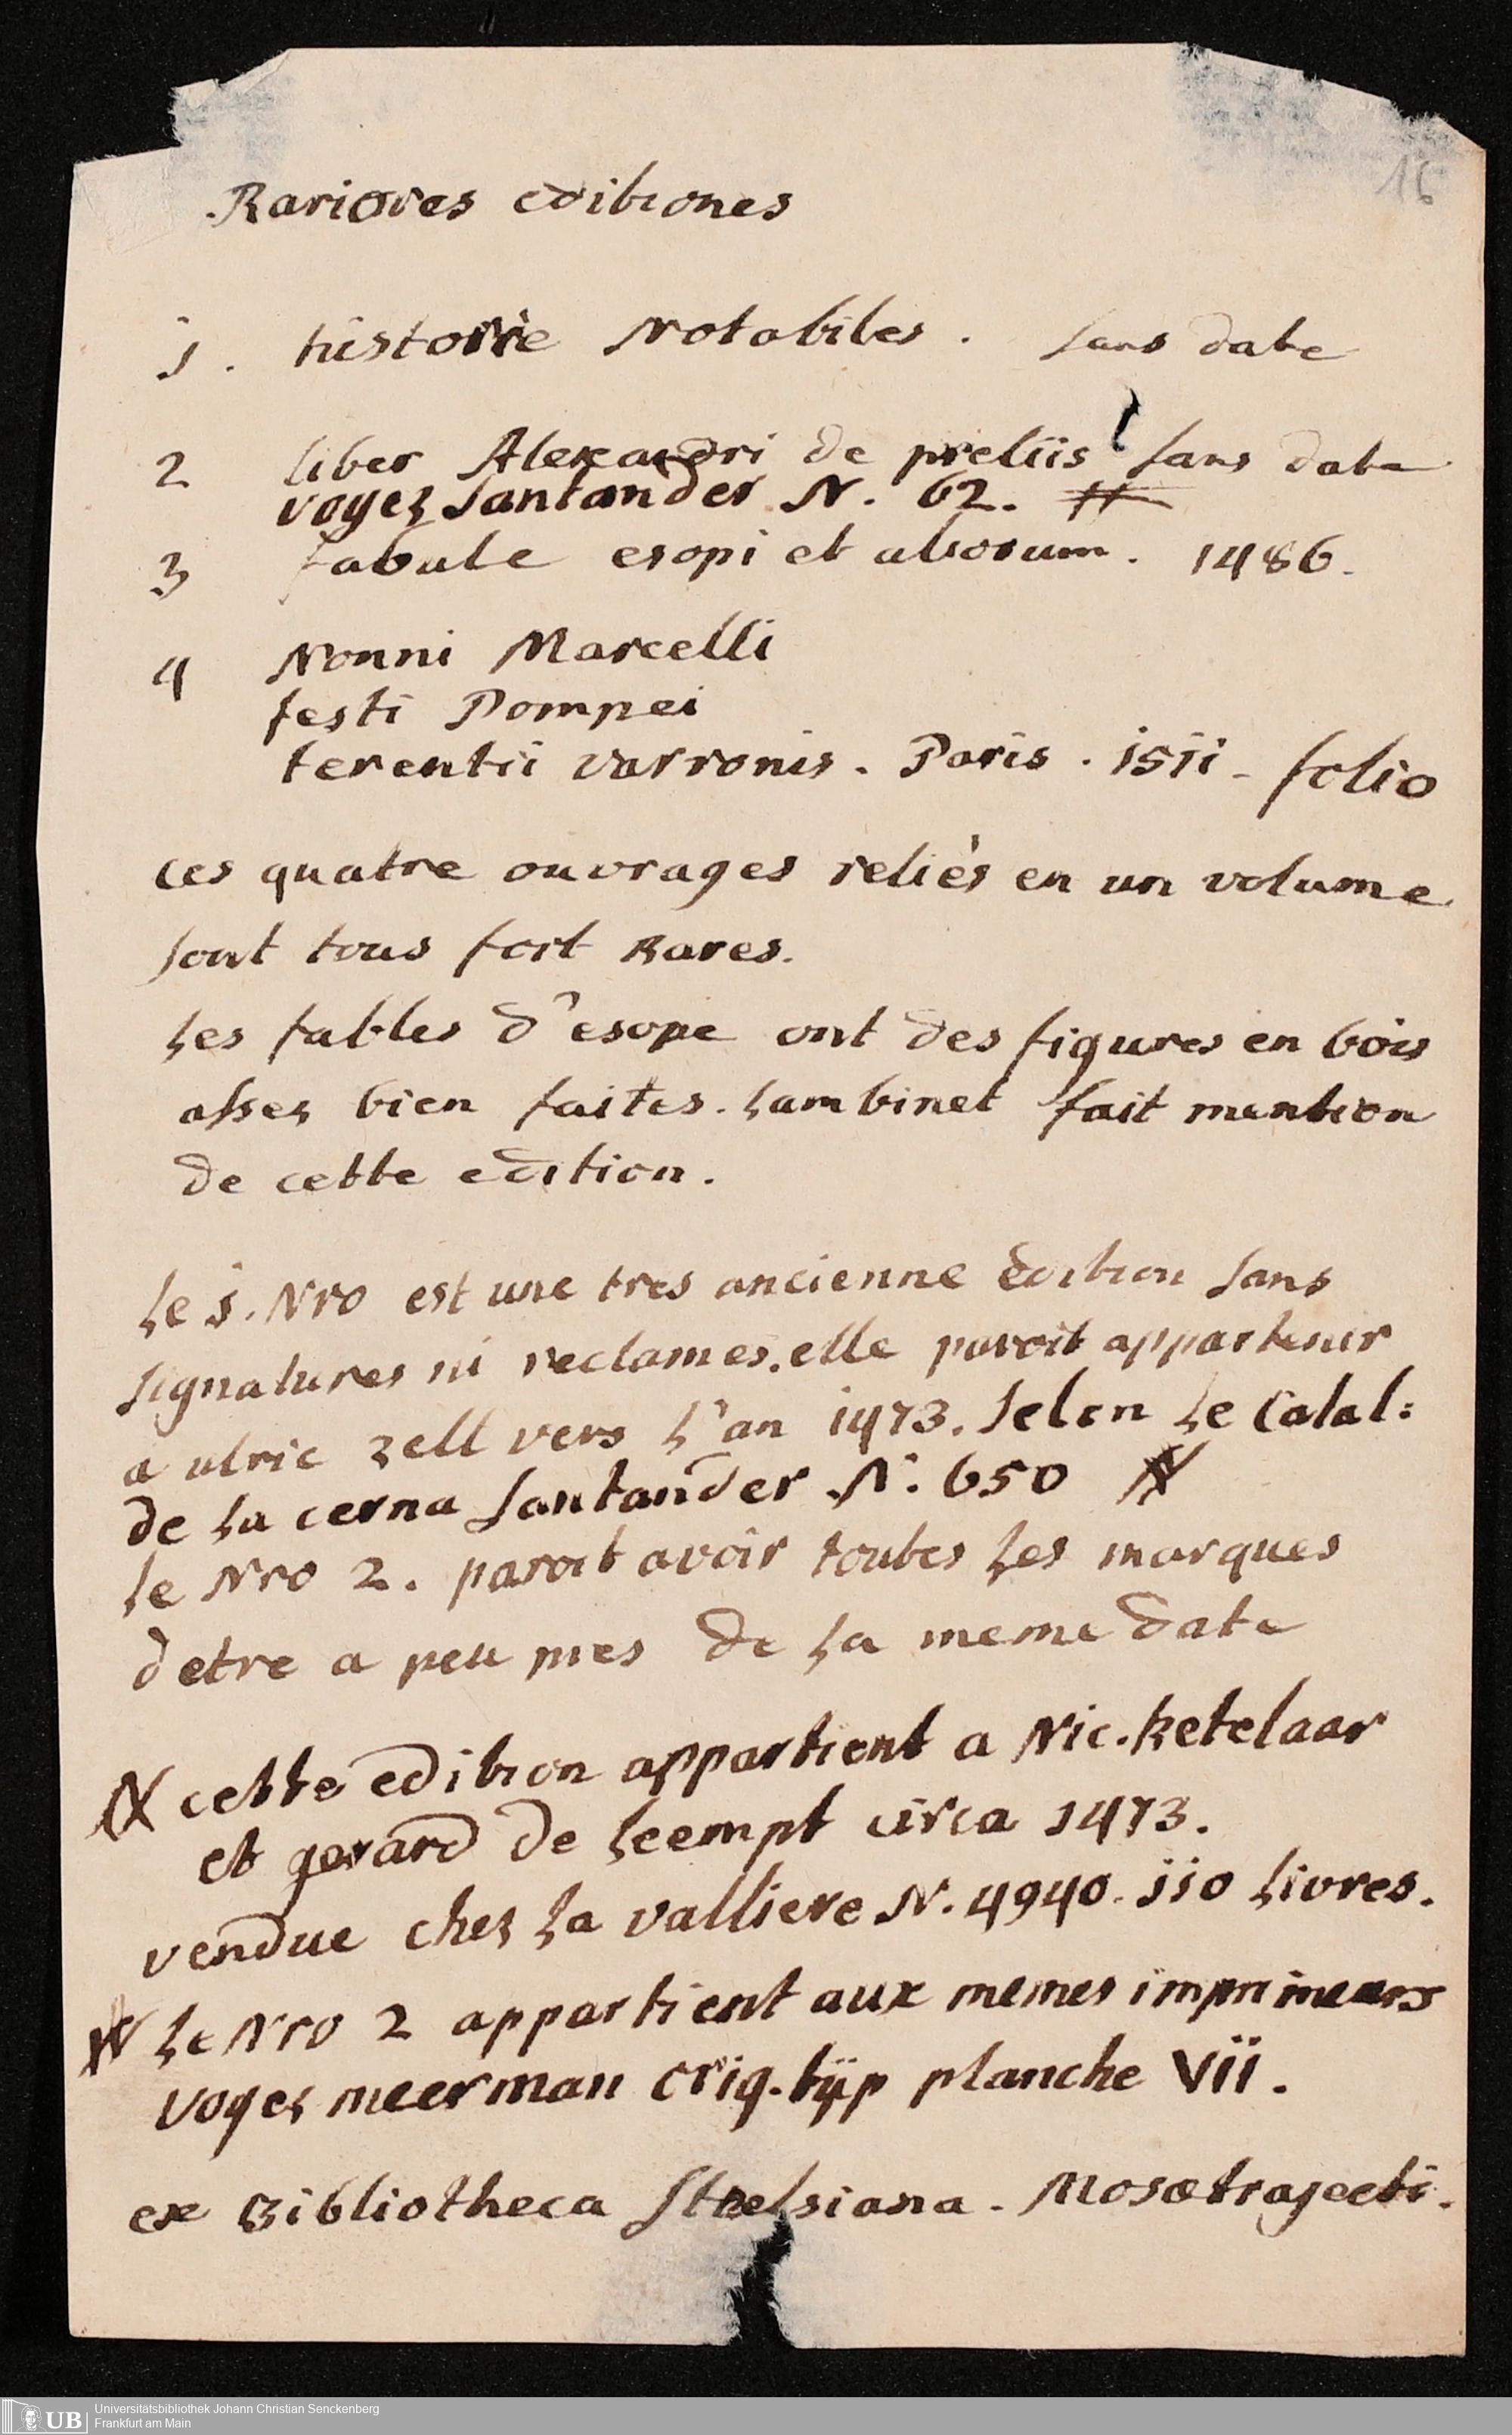 16
Rariores editiones
1. historie Notabiles. sans date
2 liber Alexandri de preliis sans date
voyez Santander N. 62. #
3 fabule esopi et aliorum. 1486.
4 Nonni Marcelli
festi Pompei
terentii varronis. Paris. 1511 - folio
ces quatre ouvrages reliés en un volume
sont tous fort Rares.
les fables d'esope ont des figures en bois
assez bien faites. Lambinet fait mention
de cette edition.
le 1. Nro est une tres ancienne edition sans
signatures ni reclames. elle paroit appartenir
a ulric zell vers l'an 1473. selon le Catal:
de la cerna Santander N. 650
le Nro 2. paroit avoir toutes les marques
d'etre a peu pres de la meme date
cette edition appartient a Nic. ketelaar
et gerard de leempt circa 1473.
vendue chez la valliere N. 4940. 110 livres.
# le Nro 2 appartient aux memes imprimeurs
voyez meerman orig. typ planche VII.
ex Bibliotheca Stoelsiana. Mosaetrajecti.
UB
Universitätsbibliothek Johann Christian Senckenberg
Frankfurt am Main